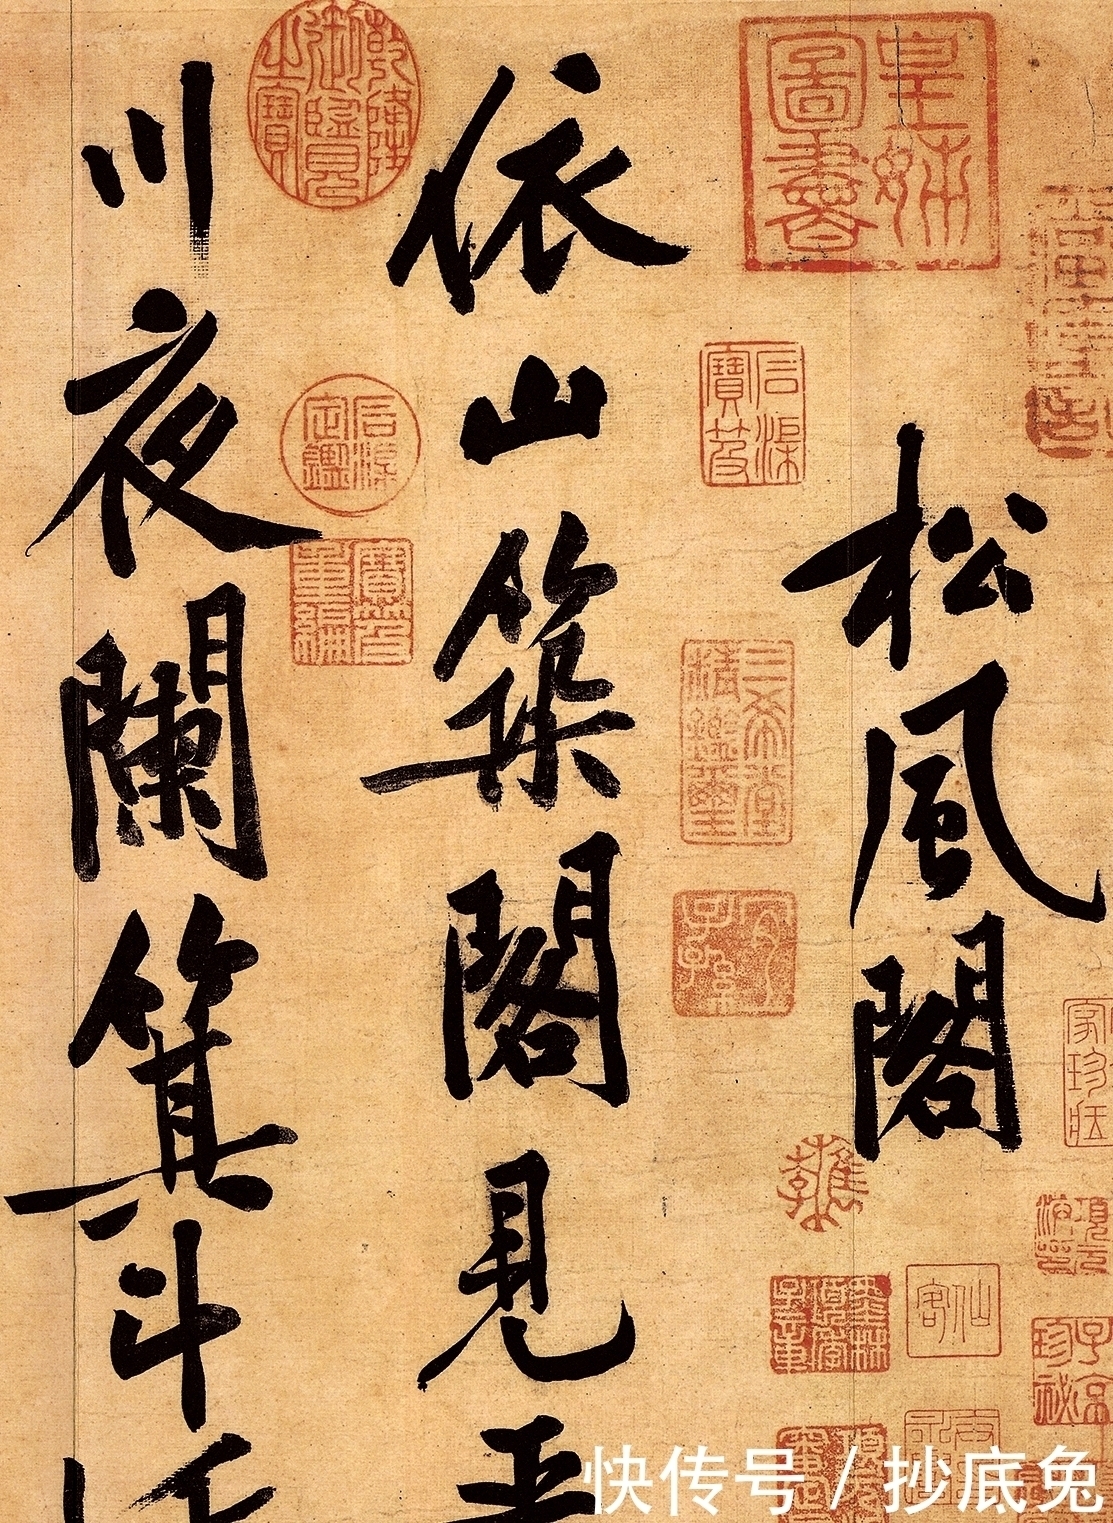 松風閣
依山築閣見平
川夜闌箕斗
皇姊圖書
乾隆御覽之寶
石渠寶笈
石渠定鑑
寶笈重編
三希堂精鑑璽
宜子孫
仙客
快传号 / 抄底兔